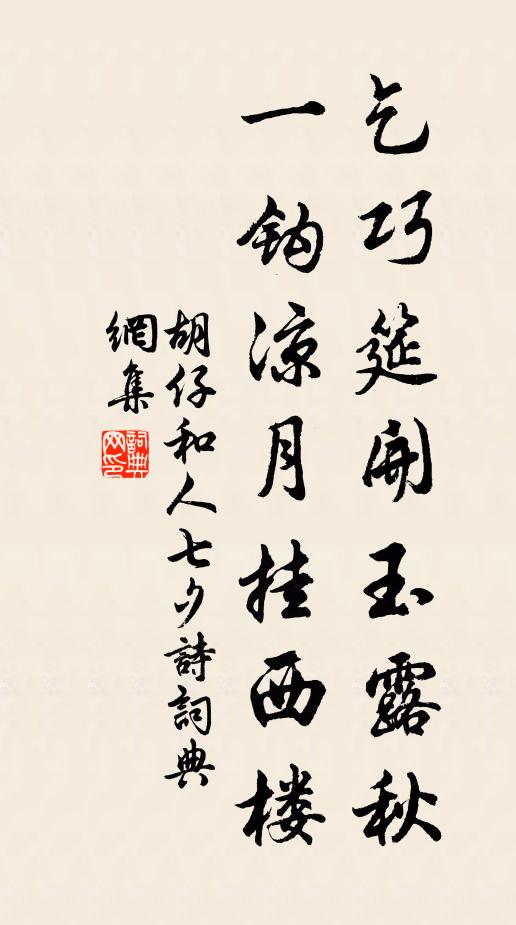 乞巧筵開玉露秋
一鈎凉月挂西楼
胡仔和人七夕詩詞典
網集
詞典
网印